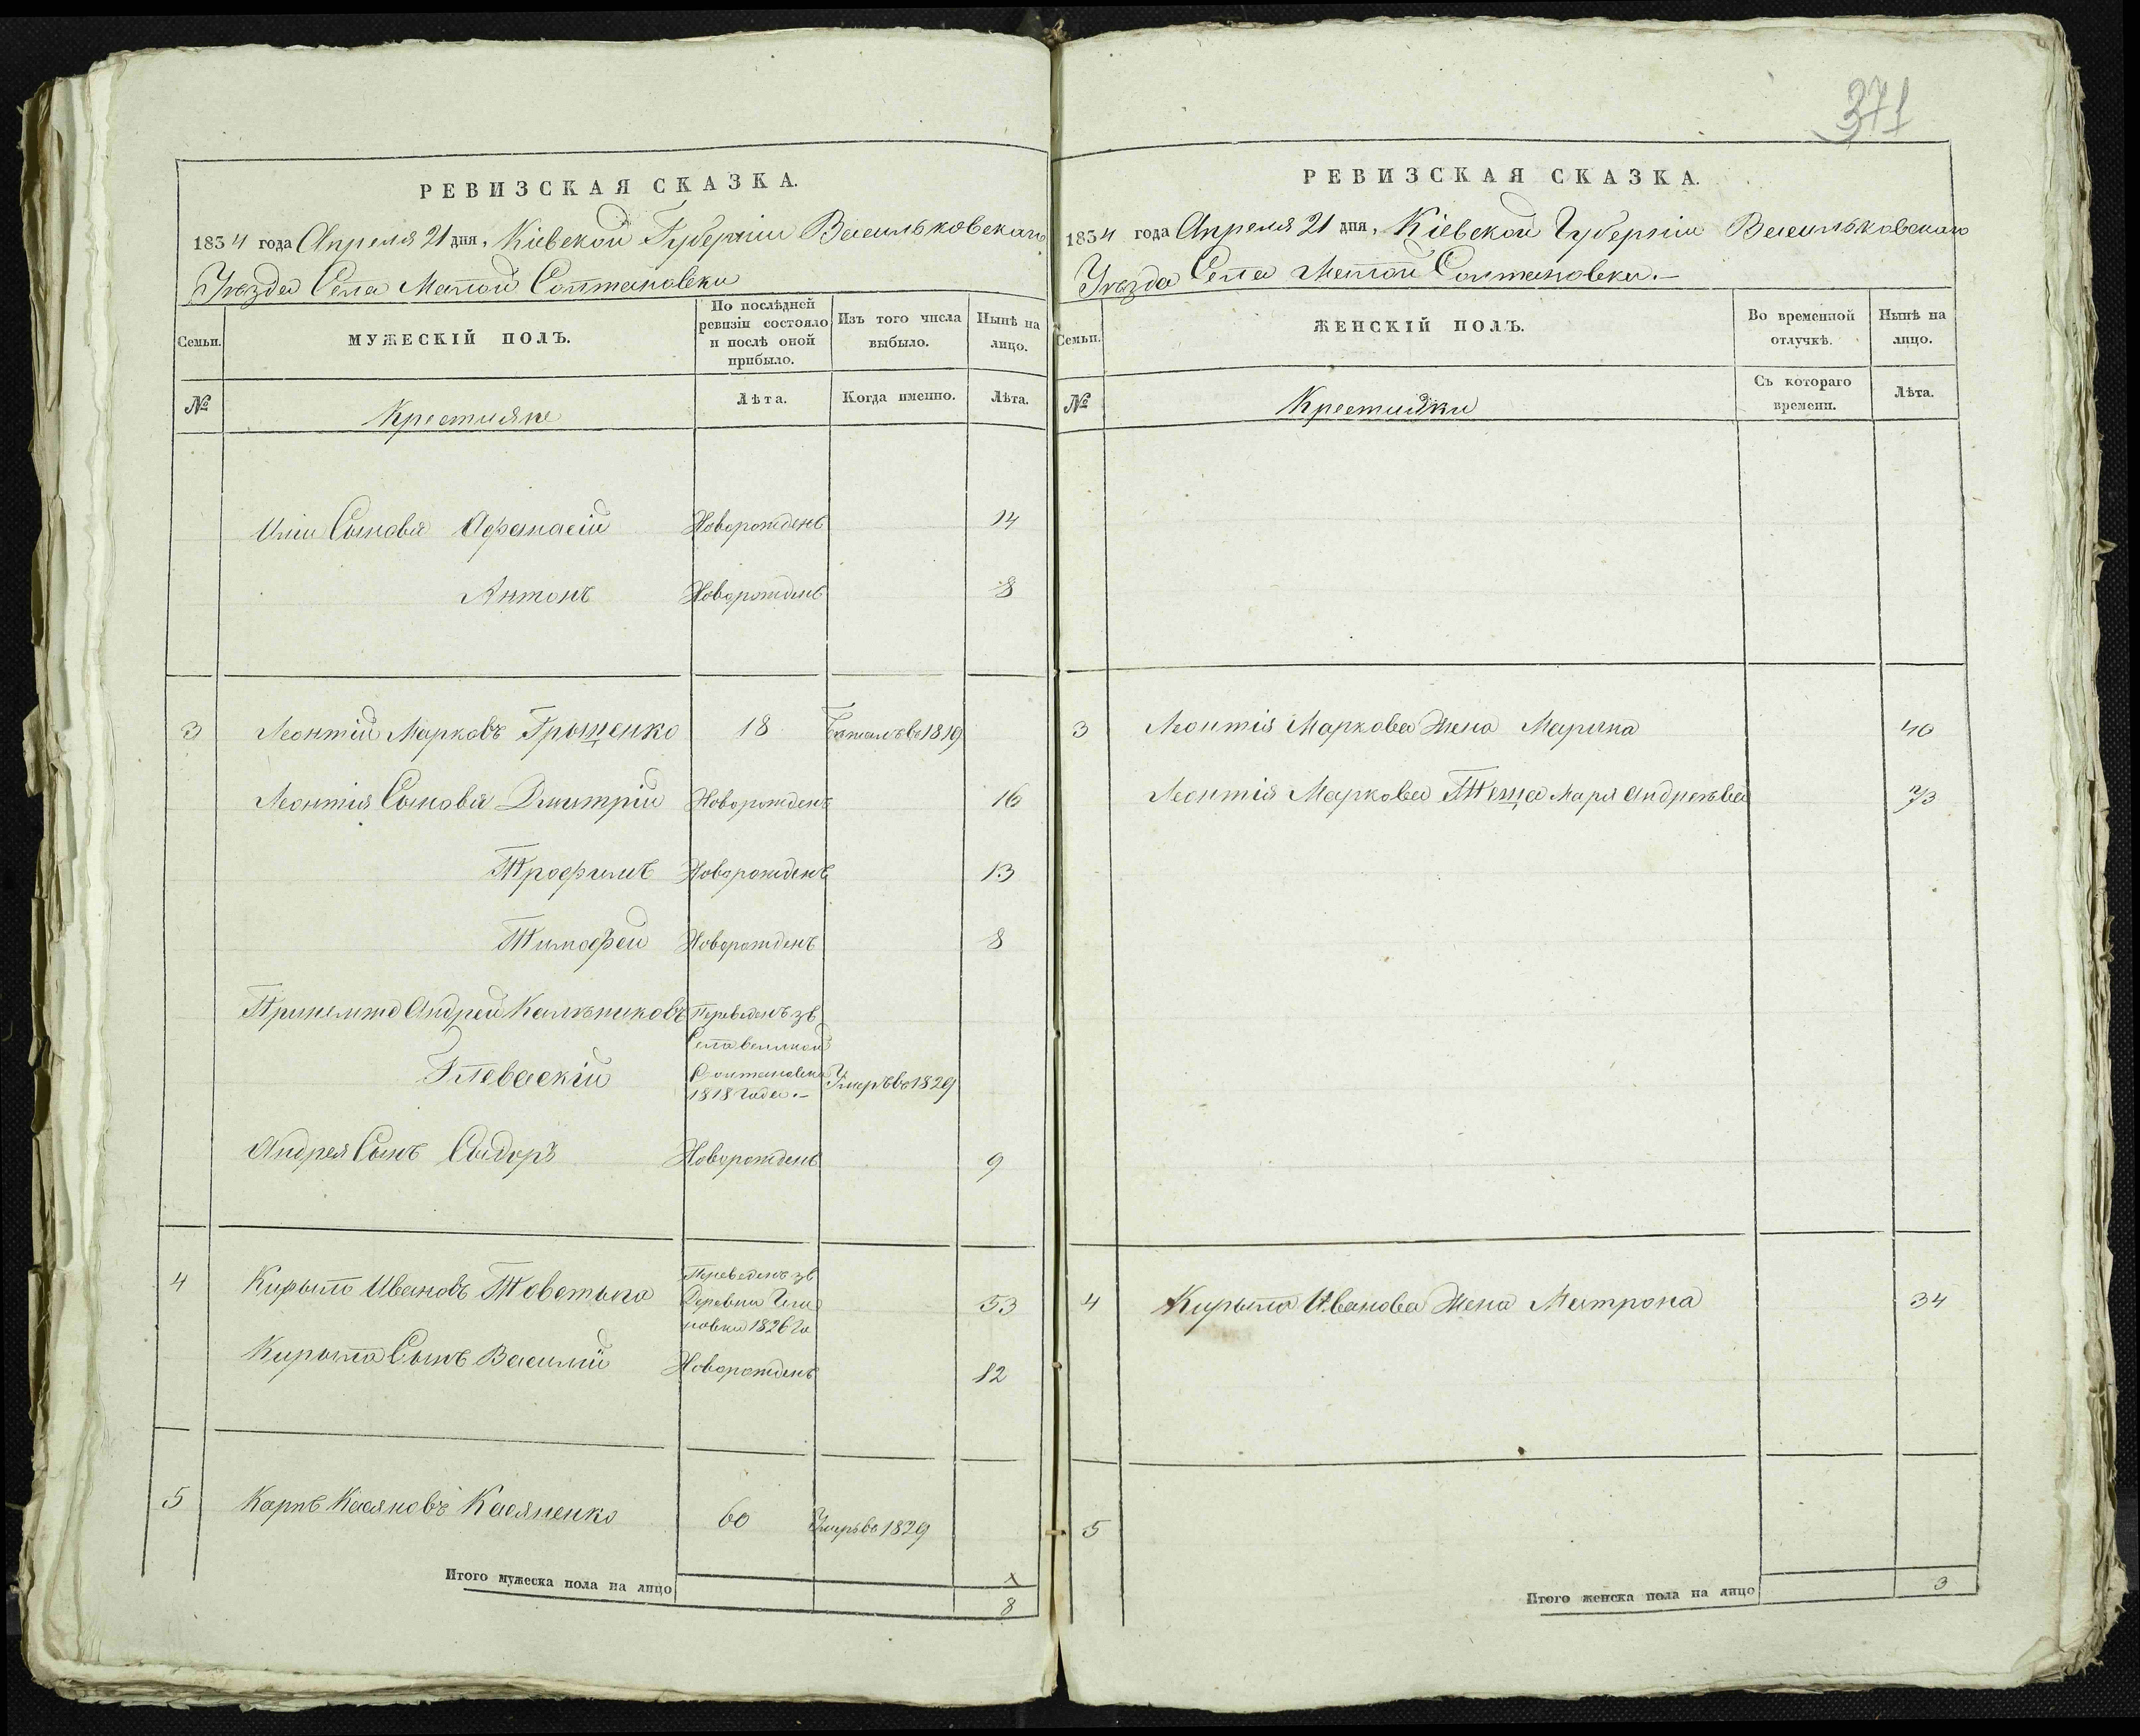 371
РЕВИЗСКАЯ СКАЗКА.
1834 года Апреля 21 дня, Кіевской Губерніи Васильковскаго
Уѣзда Села Малой Солтановки
Семьи.
МУЖЕСКІЙ ПОЛЪ.
По послѣдней ревизіи состояло и послѣ оной прибыло.
Изъ того числа выбыло.
Нынѣ на лицо.
№
Крестияне
Лѣта.
Когда именно.
Лѣта.
Сыновья Афанасій Новорожденъ 14
Антонъ Новорожденъ 8
3 Леонтій Марковъ Грыщенко 18 1819
Леонтія Сыновья Дмитрій Новорожденъ 16
Трофимъ Новорожденъ 13
Тимофей Новорожденъ 8
Андрей Переведенъ зъ
Села великой
Солтановки Умеръ въ 1829
1818 Года.–
Андрея Сынъ Сыдоръ Новорожденъ 9
4 Кирыло Ивановъ Переведенъ зъ
Деревни 53
1826 Го
Кирыла Сынъ Василій Новорожденъ 12
5 Карпъ Касяновъ Касяненко 60 Умеръ въ 1829
Итого мужеска пола на лицо
8
РЕВИЗСКАЯ СКАЗКА.
1834 года Апреля 21 дня, Кіевской Губерніи Васильковскаго
Уѣзда Села Малой Солтановки.–
Семьи.
ЖЕНСКІЙ ПОЛЪ.
Во временной отлучкѣ.
Нынѣ на лицо.
№
Крестиянки
Съ котораго времени.
Лѣта.
3 Леонтія Маркова Жена Марина 40
Леонтія Маркова Теща Маря Андреѣва 73
4 Кирыла Иванова Жена Матрона 34
5
Итого женска пола на лицо 3